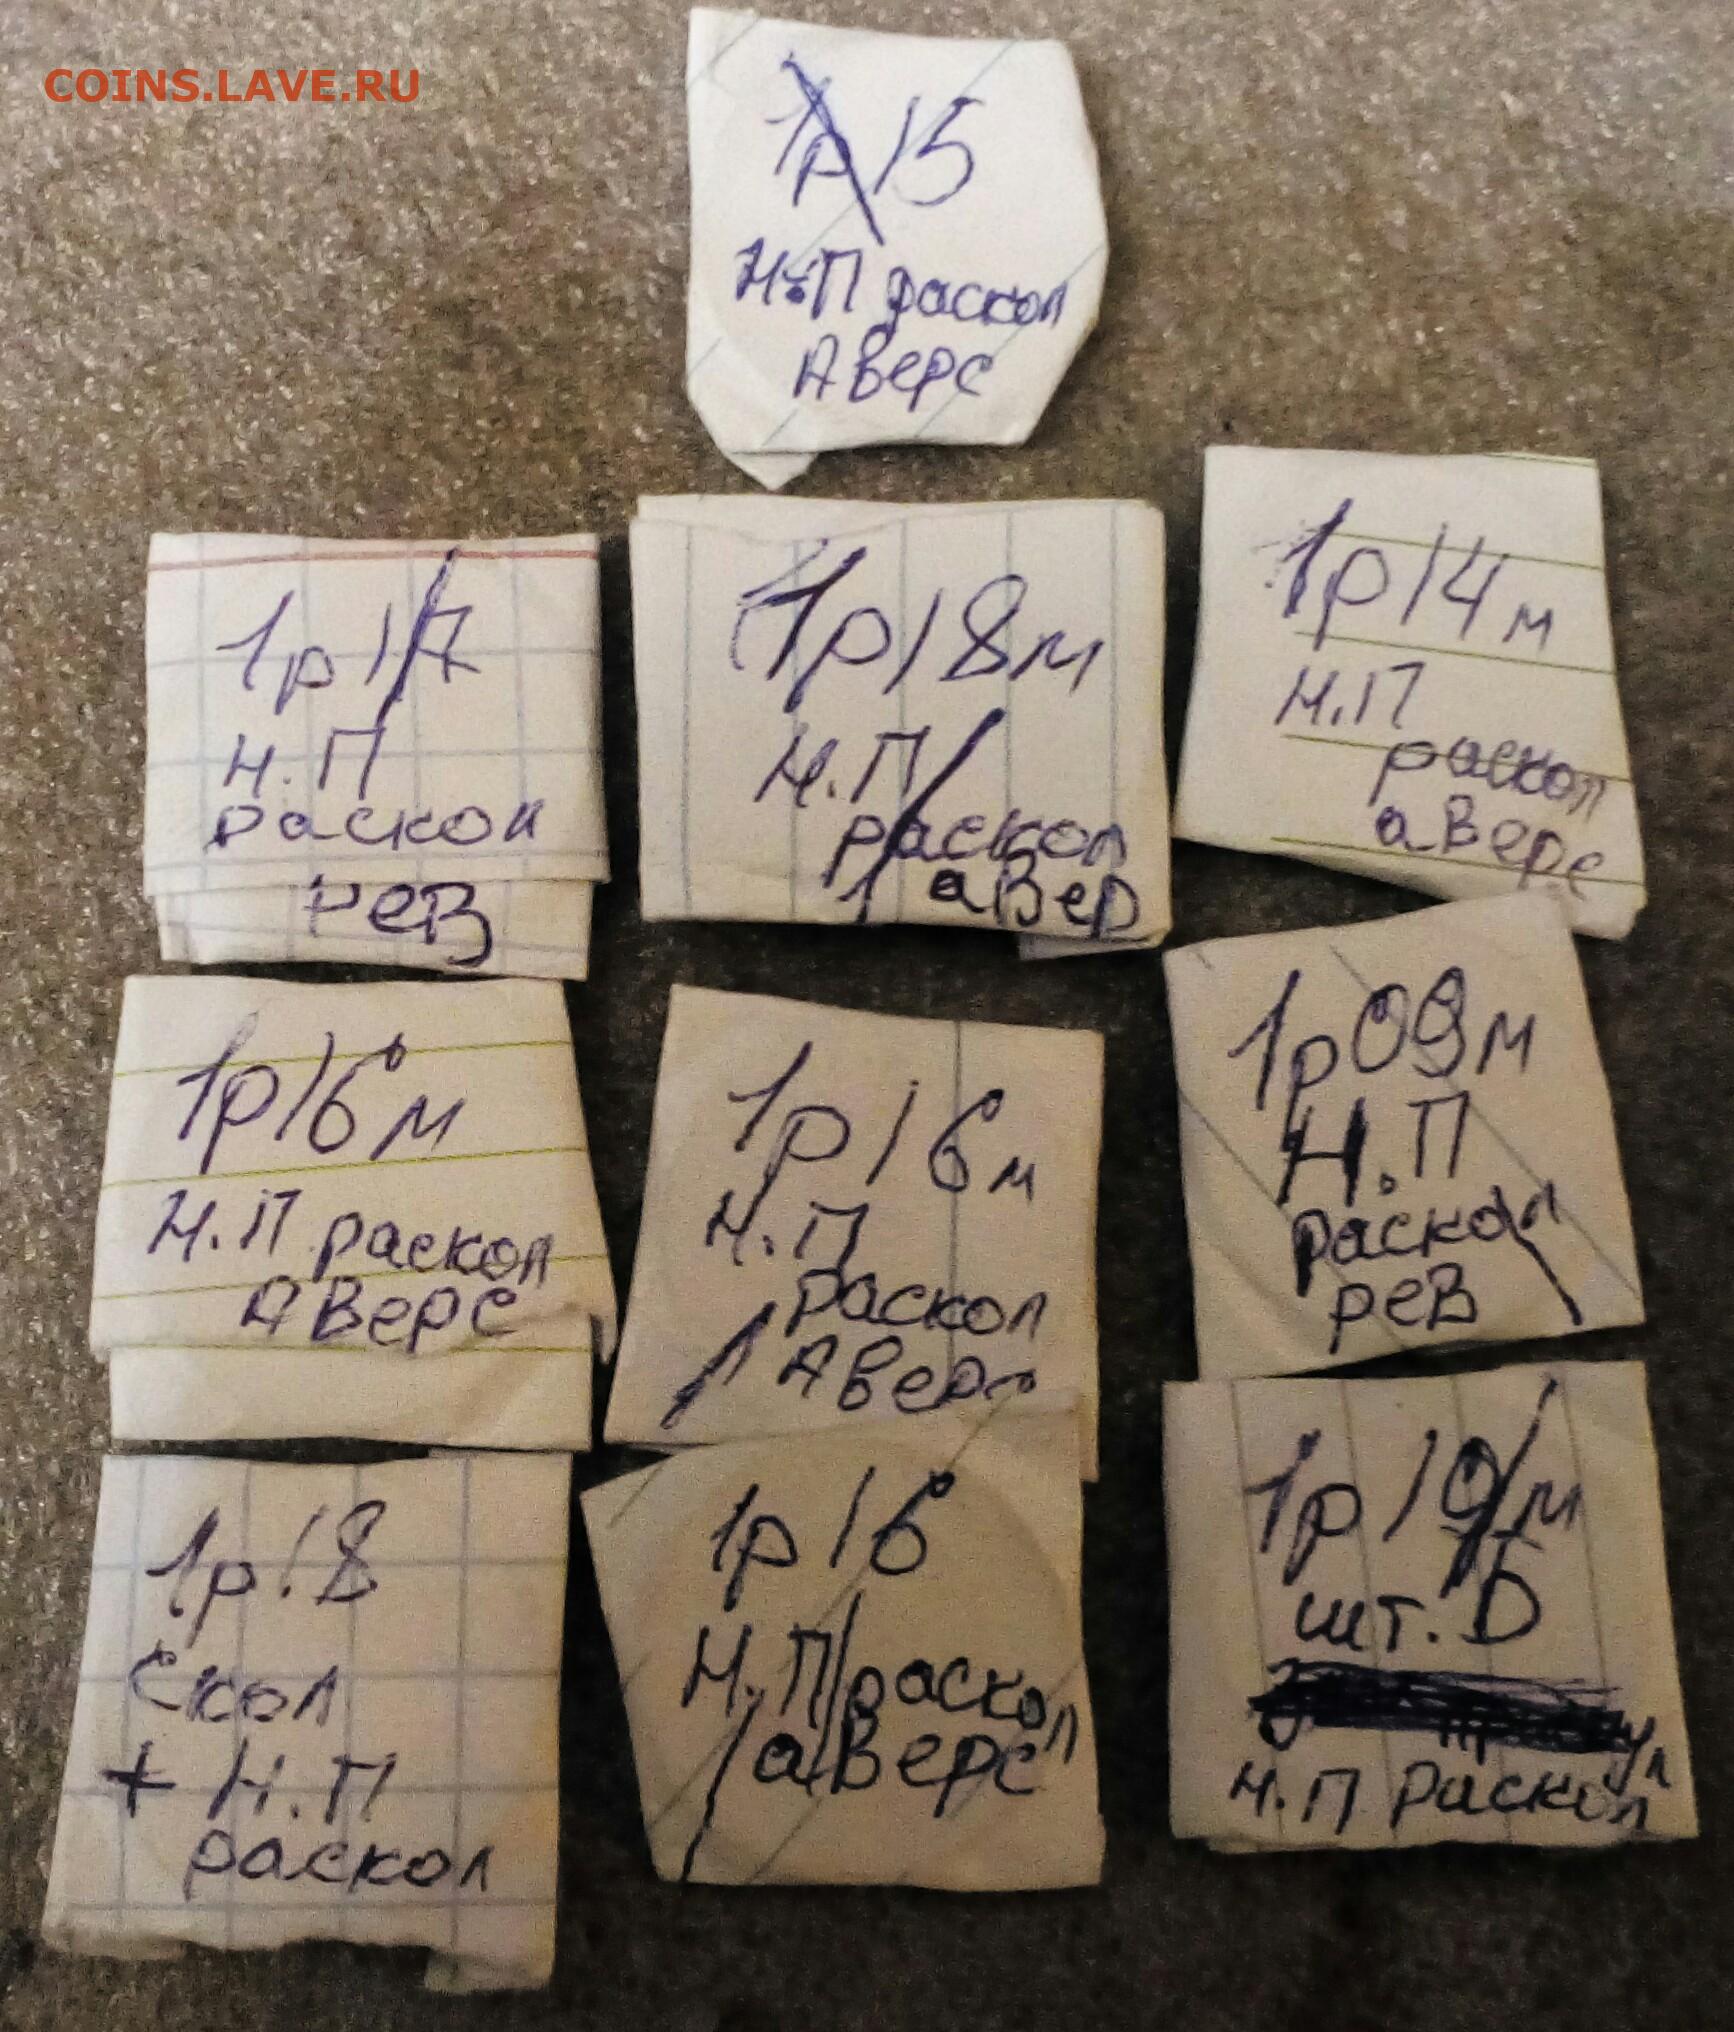 COINS.LAVE.RU
1р 15
Н.П раскол
Аверс
1р 17
Н.П
раскол
рев
1р 18 м
Н.П
раскол
авер
1р 14 м
Н.П
раскол
аверс
1р 16 м
Н.П раскол
Аверс
1р 16 м
Н.П
раскол
Аверс
1р 09 м
Н.П
раскол
рев
1р 18
Скол
+ Н.П
раскол
1р 16
Н.П раскол
аверс
1р 19 м
шт. Б
Н.П раскол